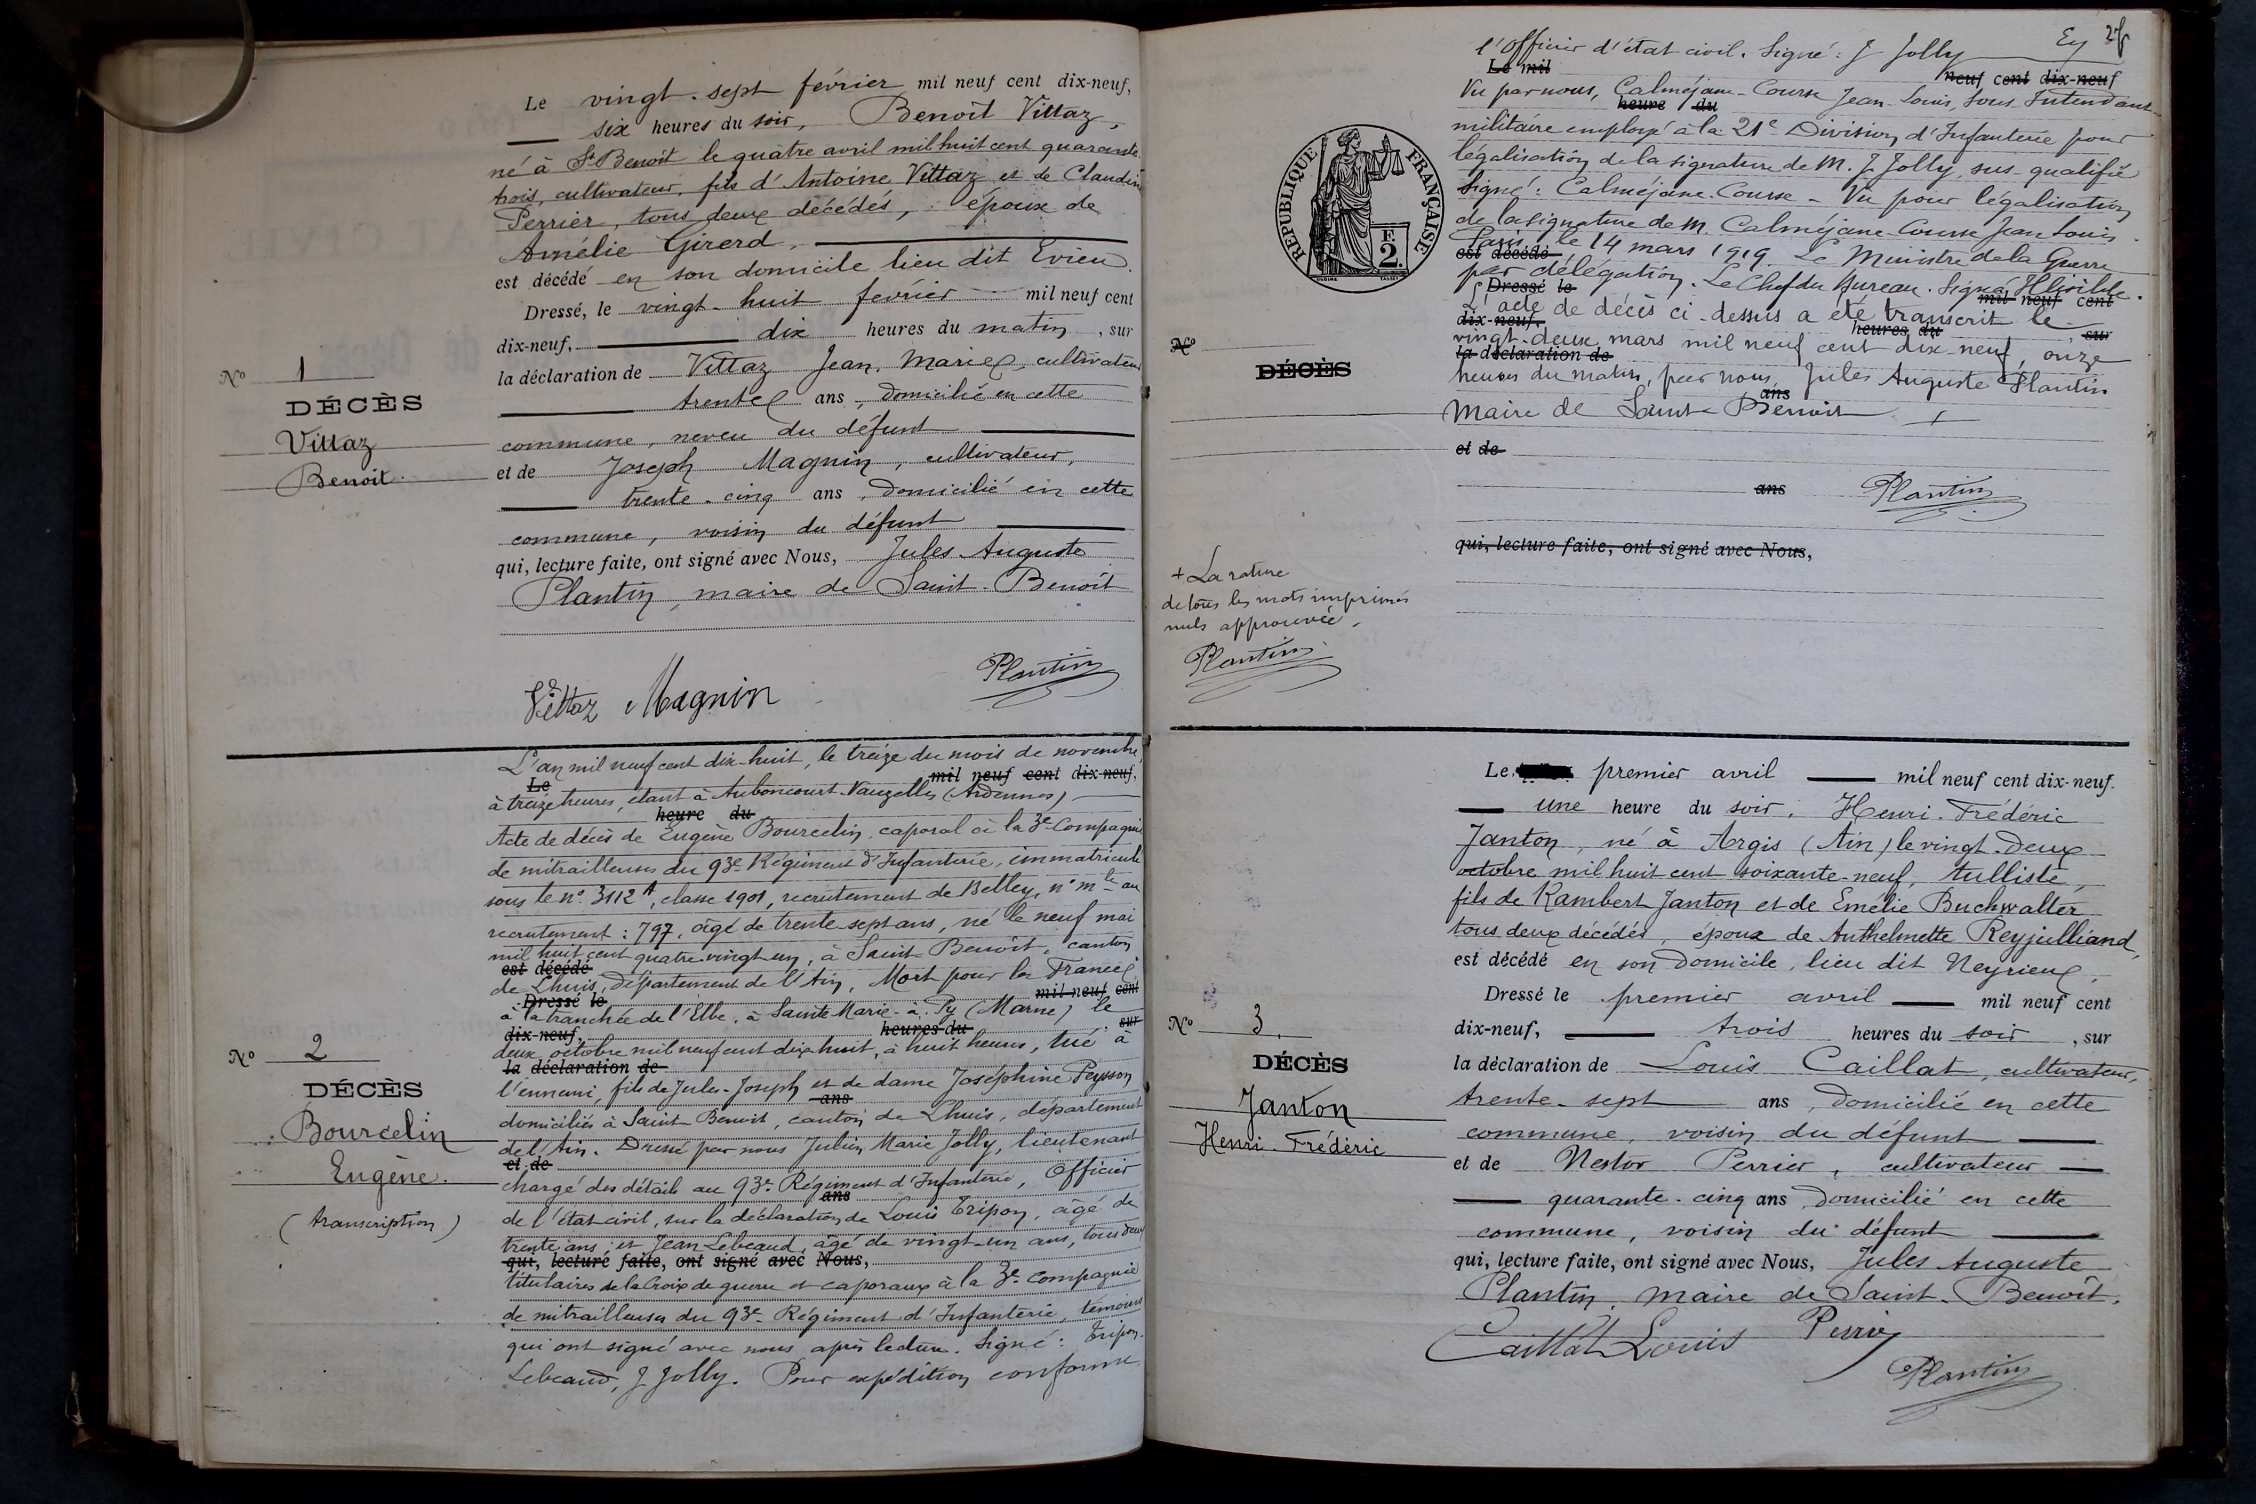 Le vingt-sept février mil neuf cent dix-neuf,
six heures du soir, Benoît Vittaz,
né à St Benoît le quatre avril mil huit cent quarante
trois, cultivateur, fils d'Antoine Vittaz et de Claudine
Perrier, tous deux décédés, époux de
Amélie Girerd,
est décédé en son domicile lieu dit Evieu.
Dressé, le vingt-huit février mil neuf cent
dix-neuf, dix heures du matin, sur
la déclaration de Vittaz Jean, Marie, cultivateur
trente ans, domicilié en cette
commune, neveu du défunt
et de Joseph Magnin, cultivateur,
trente-cinq ans, domicilié en cette
commune, voisin du défunt
qui, lecture faite, ont signé avec Nous, Jules Auguste
Plantin, maire de Saint-Benoît
N° 1
DÉCÈS
Vittaz
Benoit.
Vittaz Magnin Plantin
L'an mil neuf cent dix-huit, le treize du mois de novembre,
Le mil neuf cent dix-neuf,
à treize heures, étant à Auboncourt-Vauzelles (Ardennes)
heure du
Acte de décès de Eugène Bourcelin, caporal à la 3e Compagnie
de mitrailleuses du 93e Régiment d'Infanterie, immatriculé
sous le n° 3112 A, classe 1901, recrutement de Belley, n° mle au
recrutement : 797, âgé de trente sept ans, né le neuf mai
mil huit cent quatre-vingt-un, à Saint-Benoît, canton
est décédé
de Lhuis, département de l'Ain, Mort pour la France
Dressé le mil neuf cent
à la tranchée de l'Elbe, à Sainte Marie-à-Py (Marne) le
dix-neuf, heures du sur
deux octobre mil neuf cent dix huit, à huit heures, tué à
la déclaration de
l'ennemi, fils de Jules-Joseph et de dame Joséphine Peysson
ans
domiciliés à Saint-Benoit, canton de Lhuis, département
de l'Ain. Dressé par nous Julien Marie Jolly, lieutenant
et de
chargé des détails au 93e Régiment d'Infanterie, Officier
ans
de l'état civil, sur la déclaration de Louis Tripon, âgé de
trente ans, et Jean Lebeaud, âgé de vingt-un ans, tous deux
qui, lecture faite, ont signé avec Nous,
titulaires de la Croix de guerre et caporaux à la 3e Compagnie
de mitrailleuses du 93e Régiment d'Infanterie, témoins
qui ont signé avec nous après lecture. Signé : Tripon.
Lebeaud, J Jolly. Pour expédition conforme
N° 2
DÉCÈS
Bourcelin
Eugène.
(transcription)
l'Officier d'état civil. Signé : J Jolly
Le mil neuf cent dix-neuf
Vu par nous, Calméjane-Course Jean-Louis, sous Intendant
heure du
militaire employé à la 21e Division d'Infanterie pour
légalisation de la signature de M. J Jolly, sus-qualifié
Signé : Calméjane-Course - Vu pour légalisation
de la signature de M. Calméjane Course Jean Louis.
Paris, le 14 mars 1919. Le Ministre de la Guerre
est décédé
par délégation. Le Chef du bureau. Signé Illisible.
Dressé le mil neuf cent
L'acte de décès ci-dessus a été transcrit le
dix-neuf, heures du sur
vingt-deux mars mil neuf cent dix-neuf, onze
la déclaration de
heures du matin, par nous, Jules Auguste Plantin
ans
maire de Saint-Benoit +
et de
ans Plantin
qui, lecture faite, ont signé avec Nous,
RÉPUBLIQUE FRANÇAISE
F.
2.
N°
DÉCÈS
+ La rature
de tous les mots imprimés
nuls approuvée.
Plantin
Le premier avril mil neuf cent dix-neuf.
une heure du soir, Henri-Frédéric
Janton, né à Argis (Ain) le vingt-deux
octobre mil huit cent soixante-neuf, tulliste,
fils de Rambert Janton et de Emélie Buchwalter
tous deux décédés, époux de Anthelmette Reyjulliand,
est décédé en son domicile, lieu dit Neyrieux,
Dressé le premier avril mil neuf cent
dix-neuf, trois heures du soir, sur
la déclaration de Louis Caillat, cultivateur,
trente-sept ans, domicilié en cette
commune, voisin du défunt
et de Nestor Perrier, cultivateur
quarante-cinq ans, domicilié en cette
commune, voisin du défunt
qui, lecture faite, ont signé avec Nous, Jules Auguste
Plantin, maire de Saint-Benoît.
Caillat Louis Perrier
Plantin
N° 3.
DÉCÈS
Janton
Henri-Frédéric